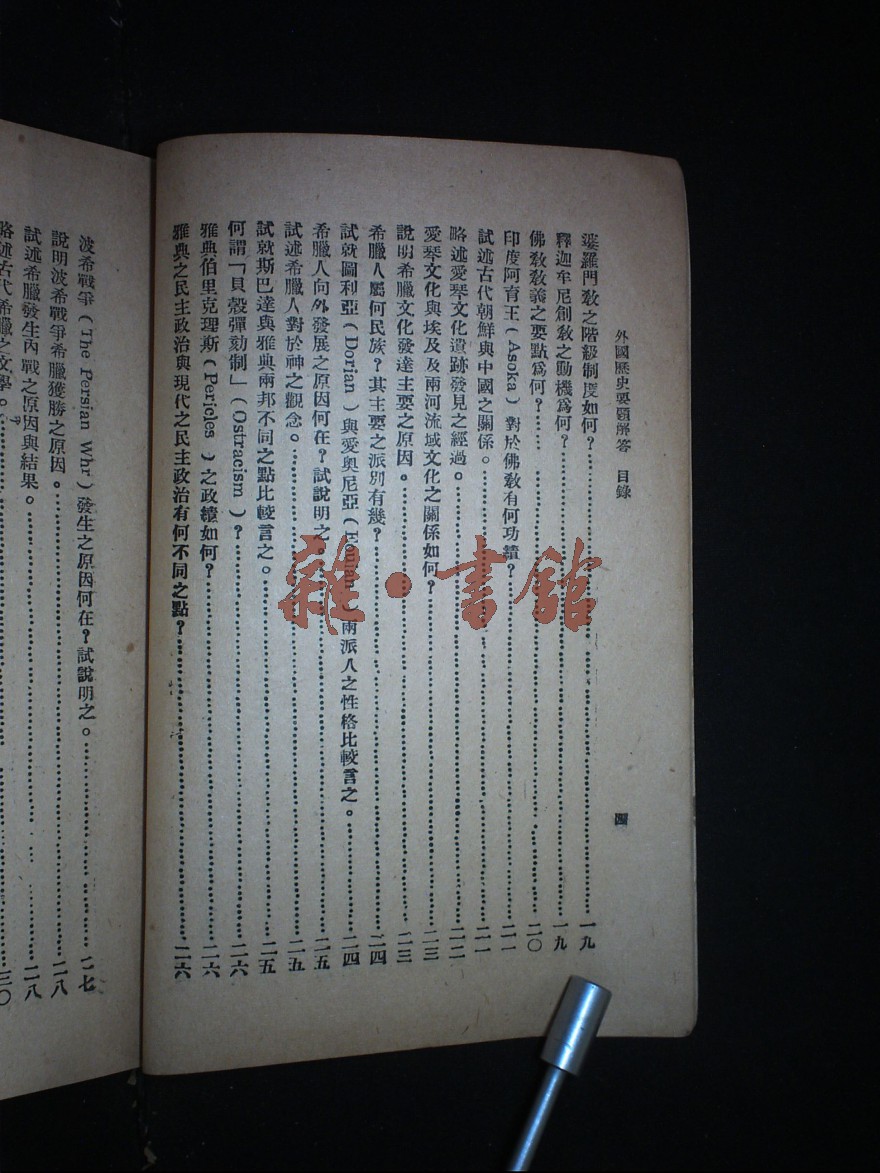 外國歷史要題解答 目錄
四
婆羅門敎之階級制度如何？……一九
釋迦牟尼創敎之動機爲何？……一九
佛敎敎義之要點爲何？……二〇
印度阿育王(Asoka)對於佛敎有何功績？……二一
試述古代朝鮮與中國之關係。……二一
略述愛琴文化遺跡發見之經過。……二二
愛琴文化與埃及及兩河流域文化之關係如何？……二三
說明希臘文化發達主要之原因。……二三
希臘人屬何民族？其主要之派別有幾？……二四
試就圖利亞(Dorian)與愛奧尼亞(Ionian)兩派人之性格比較言之。……二四
希臘人向外發展之原因何在？試說明之。……二五
試述希臘人對於神之觀念。……二五
試就斯巴達與雅典兩邦不同之點比較言之。……二五
何謂「貝殼彈劾制」(Ostracism)？……二六
雅典伯里克理斯(Pericles)之政績如何？……二六
雅典之民主政治與現代之民主政治有何不同之點？……二六
波希戰爭(The Persian Whr)發生之原因何在？試說明之。……二七
說明波希戰爭希臘獲勝之原因。……二八
試述希臘發生內戰之原因與結果。……二八
略述古代希臘之文學。……三〇
雜·書館